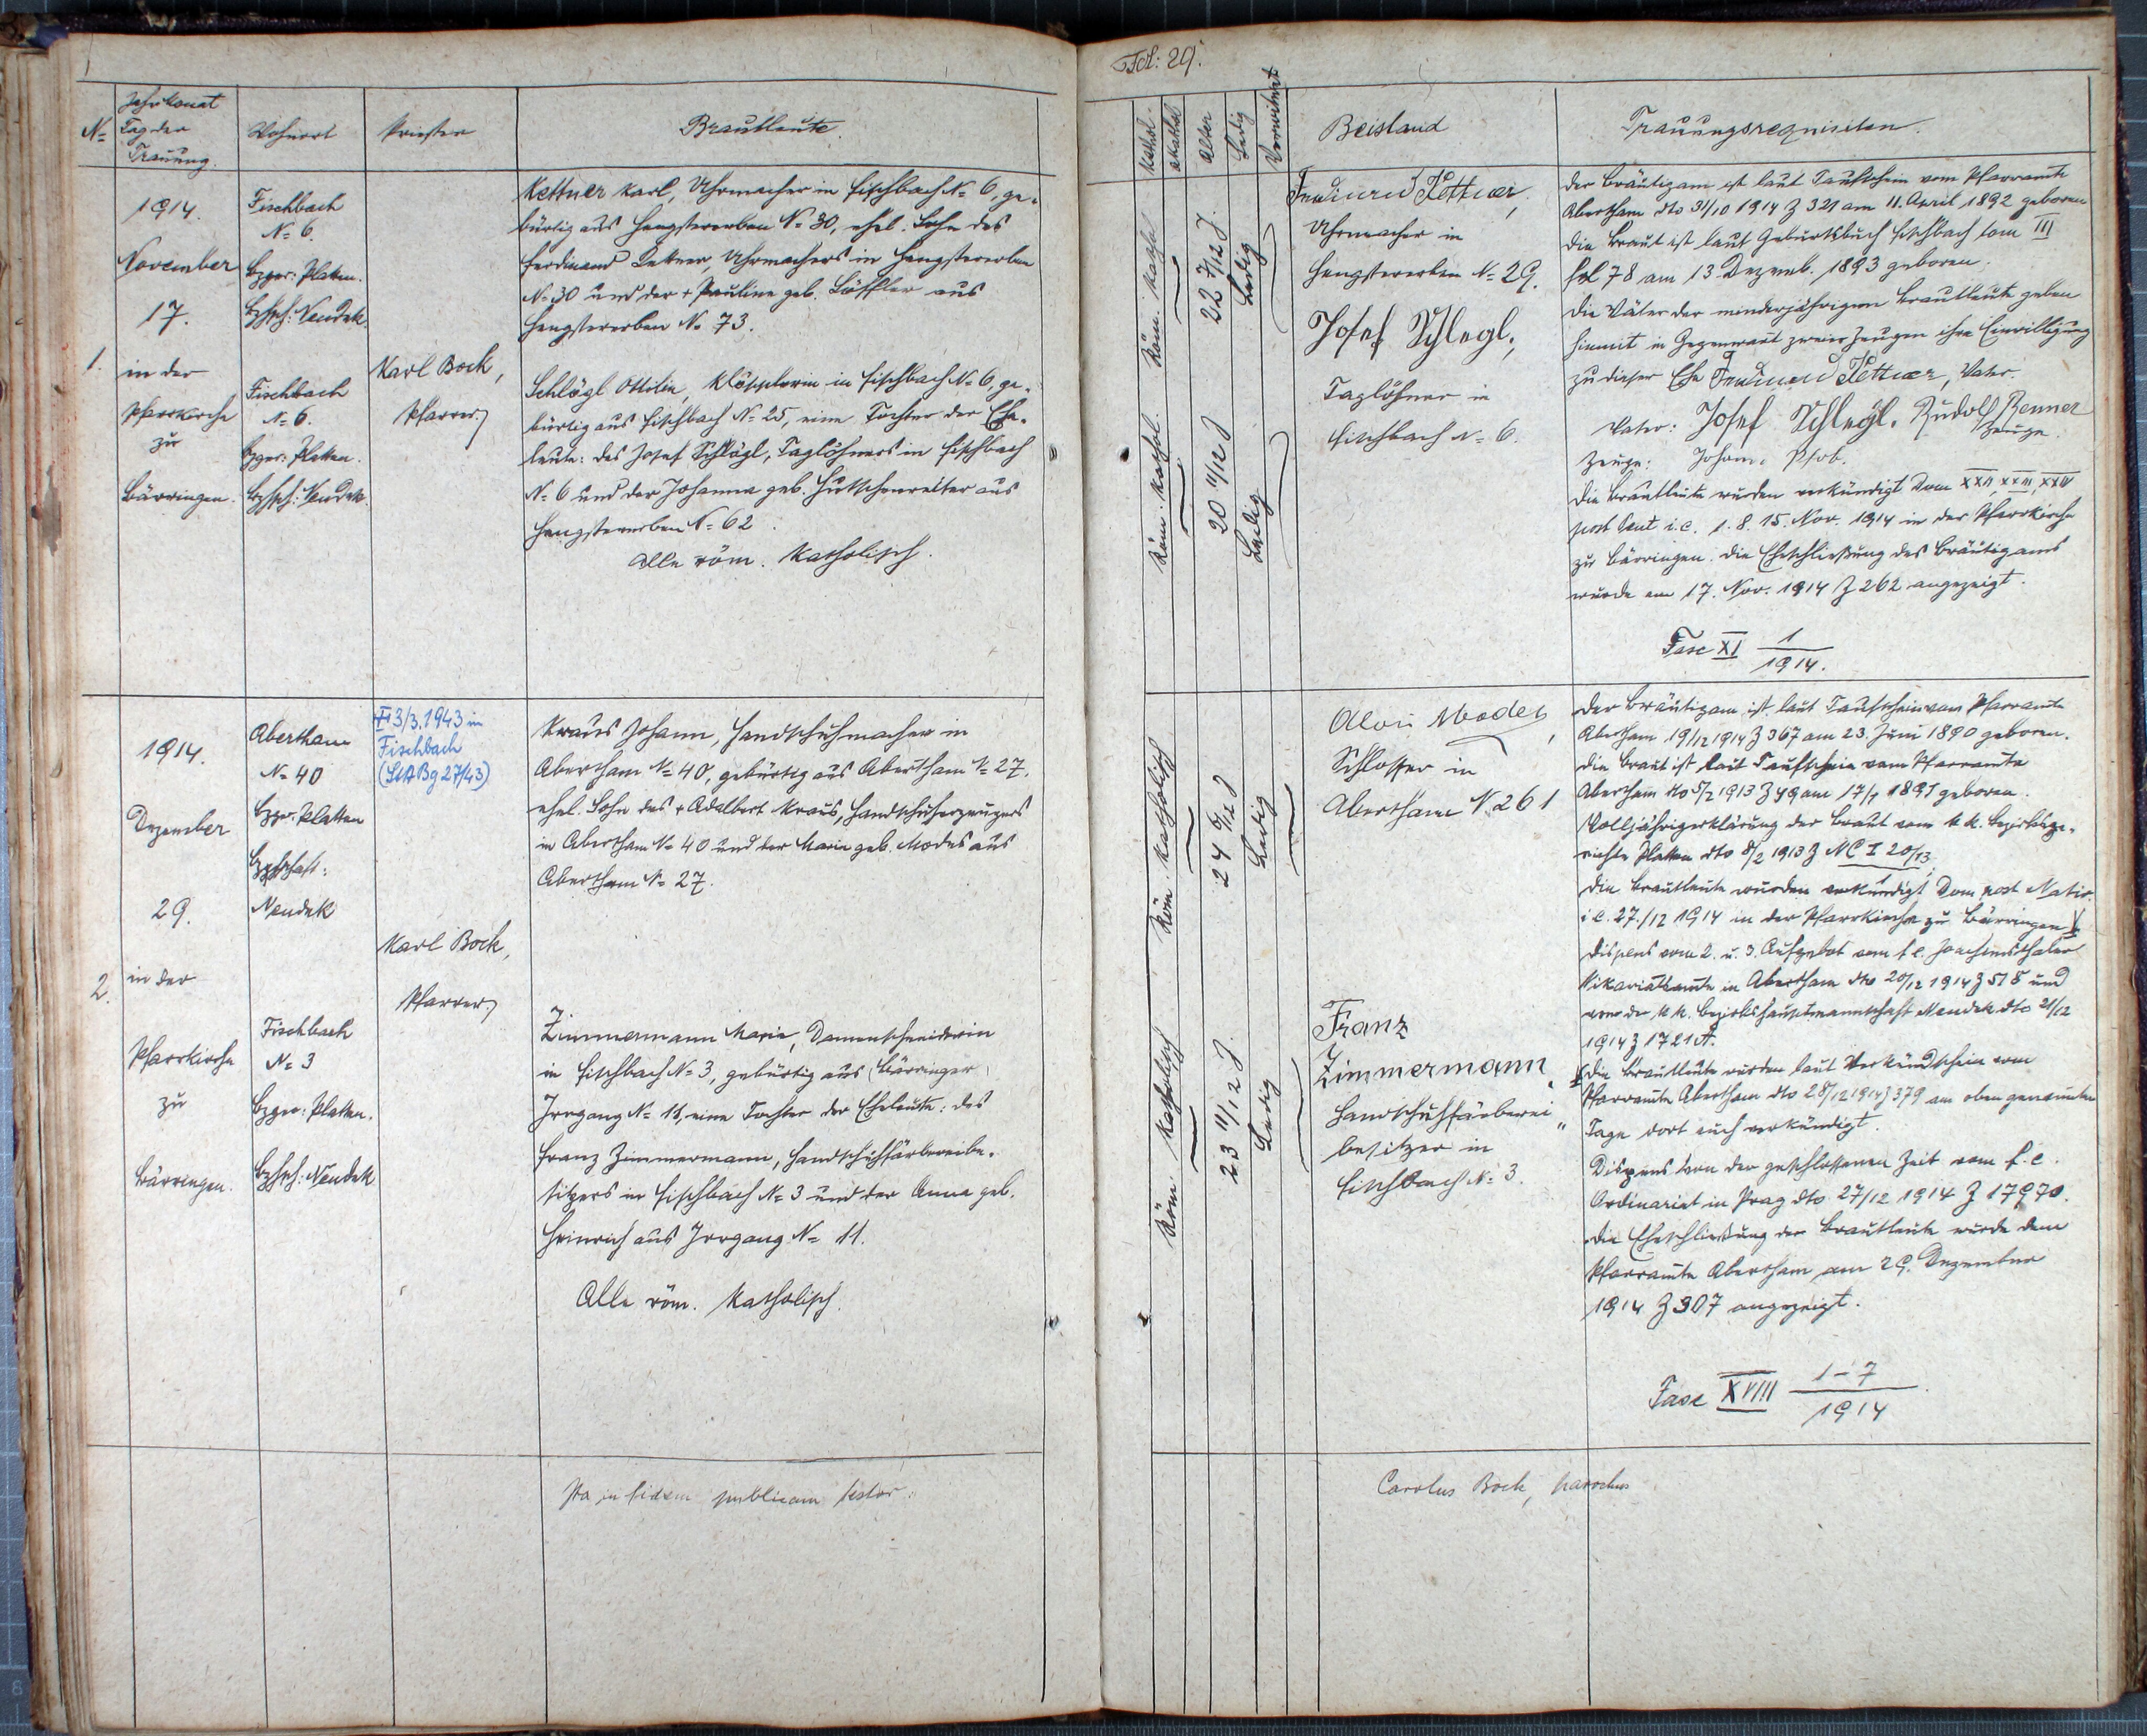 Fol: 29.
No
Jahr Monat
Tag der
Trauung.
Wohnort
Priester
Brautleute.
Kathol.
akathol.
Alter
Ledig
Verwitwet
Beistand
Trauungsrequisiten.
1.
1914.
November
17.
in der
Pfarrkirche
zu
Bärringen.
Fischbach
No 6.
Bzger: Platten.
Bzhpt: Neudek.
Fischbach
No 6.
Bzger: Platten.
Bzhpt: Neudek.
Karl Bock,
Pfarrer
Kettner Karl, Uhrmacher in Fischbach No 6, ge-
bürtig aus Hengstererben No 30, ehel. Sohn des
Ferdinand Kettner, Uhrmachers in Hengstererben
No 30 und der + Pauline geb. Löffler aus
Hengstererben No 73.
Schlögl Ottilie, Klöpplerin in Fischbach No 6, ge-
bürtig aus Fischbach No 25, eine Tochter der Ehe-
leute: des Josef Schlögl, Taglöhners in Fischbach
No 6 und der Johanna geb. Hutschenreiter aus
Hengstererben No 62.
Alle röm. Katholisch.
Röm. Kathol.
22 7/12 J.
Ledig
Röm. Kathol.
20 11/12 J
Ledig
Ferdinand Kettner,
Uhrmacher in
Hengstererben No 29.
Josef Schlegl,
Taglöhner in
Fischbach No 6.
Der Bräutigam ist laut Taufschein vom Pfarramte
Abertham dto 31/10 1914 Z 321 am 11. April 1892 geboren
Die Braut ist laut Geburtsbuch Fischbach tom III
fol 78 am 13. Dezemb. 1893 geboren.
Die Väter der minderjährigen Brautleute geben
hiemit in Gegenwart zweier Zeugen ihre Einwilligung
zu dieser Ehe Ferdinand Kettner, Vater.
Vater: Josef Schlegl. Rudolf Renner
Zeuge.
Zeuge: Johann Plob.
Die Brautleute wurden verkündigt Dom XXII, XXIII, XXIV
post Pent i.e. 1. 8. 15. Nov. 1914 in der Pfarrkirche
zu Bärringen. Die Eheschließung des Bräutigams
wurde am 17. Nov. 1914 Z 262 angezeigt.
Fasc XI 1/1914.
2.
1914.
Dezember
29.
in der
Pfarrkirche
zu
Bärringen.
Abertham
No 40
Bzger. Platten
Bzhptschaft:
Neudek
Fischbach
No 3
Bzger: Platten.
Bzhpt: Neudek
3/3.1943 in
Fischbach
(StA Bg 27/43)
Karl Bock,
Pfarrer
Kraus Johann, Handschuhmacher in
Abertham No 40, gebürtig aus Abertham No 27.
ehel. Sohn des + Adalbert Kraus, Handschuherzeugers
in Abertham No 40 und der Maria geb. Modes aus
Abertham No 27.
Zimmermann Maria, Damenschneiderin
in Fischbach No 3, gebürtig aus (Bärringer)
Irrgang No 11, eine Tochter der Eheleute: des
Franz Zimmermann, Handschuhfärbereibe-
sitzers in Fischbach No 3 und der Anna geb.
Heinrich aus Irrgang No 11.
Alle röm. Katholisch.
Röm. Katholisch
24 6/12 J
Ledig
Röm. Katholisch
23 11/12 J.
Ledig
Alois Modes,
Schlosser in
Abertham No 261
Franz
Zimmermann,
Handschuhfärberei-
besitzer in
Fischbach No 3.
Der Bräutigam ist laut Taufschein vom Pfarramte
Abertham 19/12 1914 Z 367 am 23. Juni 1890 geboren.
Die Braut ist laut Taufschein vom Pfarramte
Abertham dto 5/2 1913 Z 49 am 17/1 1891 geboren.
Volljährigerklärung der Braut vom k.k. Bezirksge-
richte Platten dto 8/2 1913 Z NC I 20/13
Die Brautleute wurden verkündigt Dom post Nativ.
i.e. 27./12 1914 in der Pfarrkirche zu Bärringen
Dispens vom 2. u. 3. Aufgebot vom f.e. Joachimsthaler
Vikariatsamte in Abertham dto 20/12 1914 Z 518 und
von der k.k. Bezirkshauptmannschaft Neudek dto 21/12
1914 Z 1721 A.
Die Brautleute wurden laut Verkündschein vom
Pfarramte Abertham dto 28/12 1914 Z 379 am oben genannten
Tage dort auch verkündigt.
Dispens von der geschlossenen Zeit vom f.e.
Ordinariat in Prag dto 27/12 1914 Z 17970.
Die Eheschließung der Brautleute wurde dem
Pfarramte Abertham am 29. Dezember
1914 Z 307 angezeigt.
Fasc XVIII 1-7/1914
Ita in fidem publicam testor:
Carolus Bock, parochus